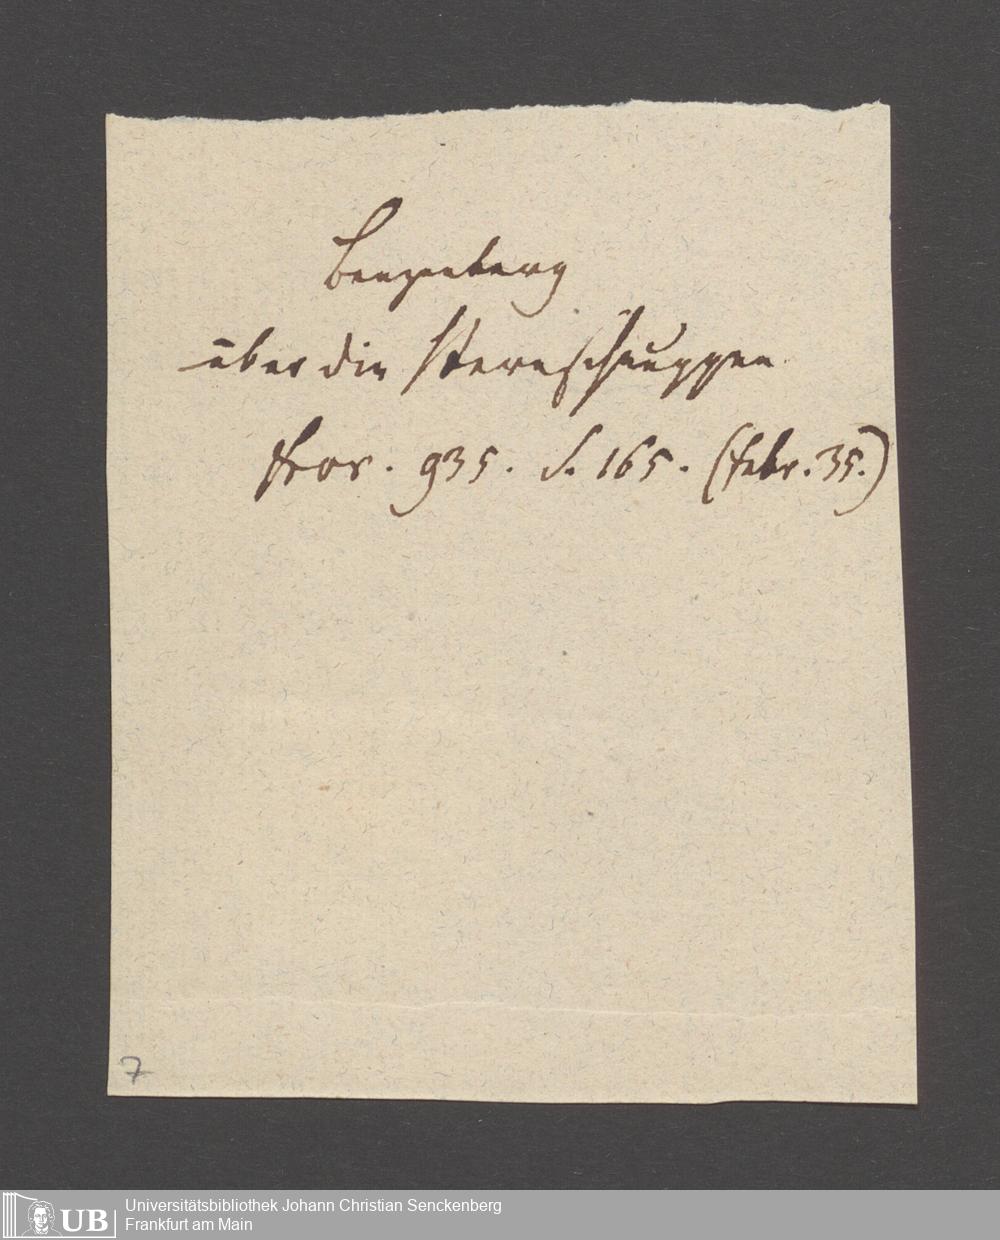 Benzenberg
über die Sternschnuppen
Fror. 935. S. 165. (Febr. 35.)
7
UB
Universitätsbibliothek Johann Christian Senckenberg
Frankfurt am Main